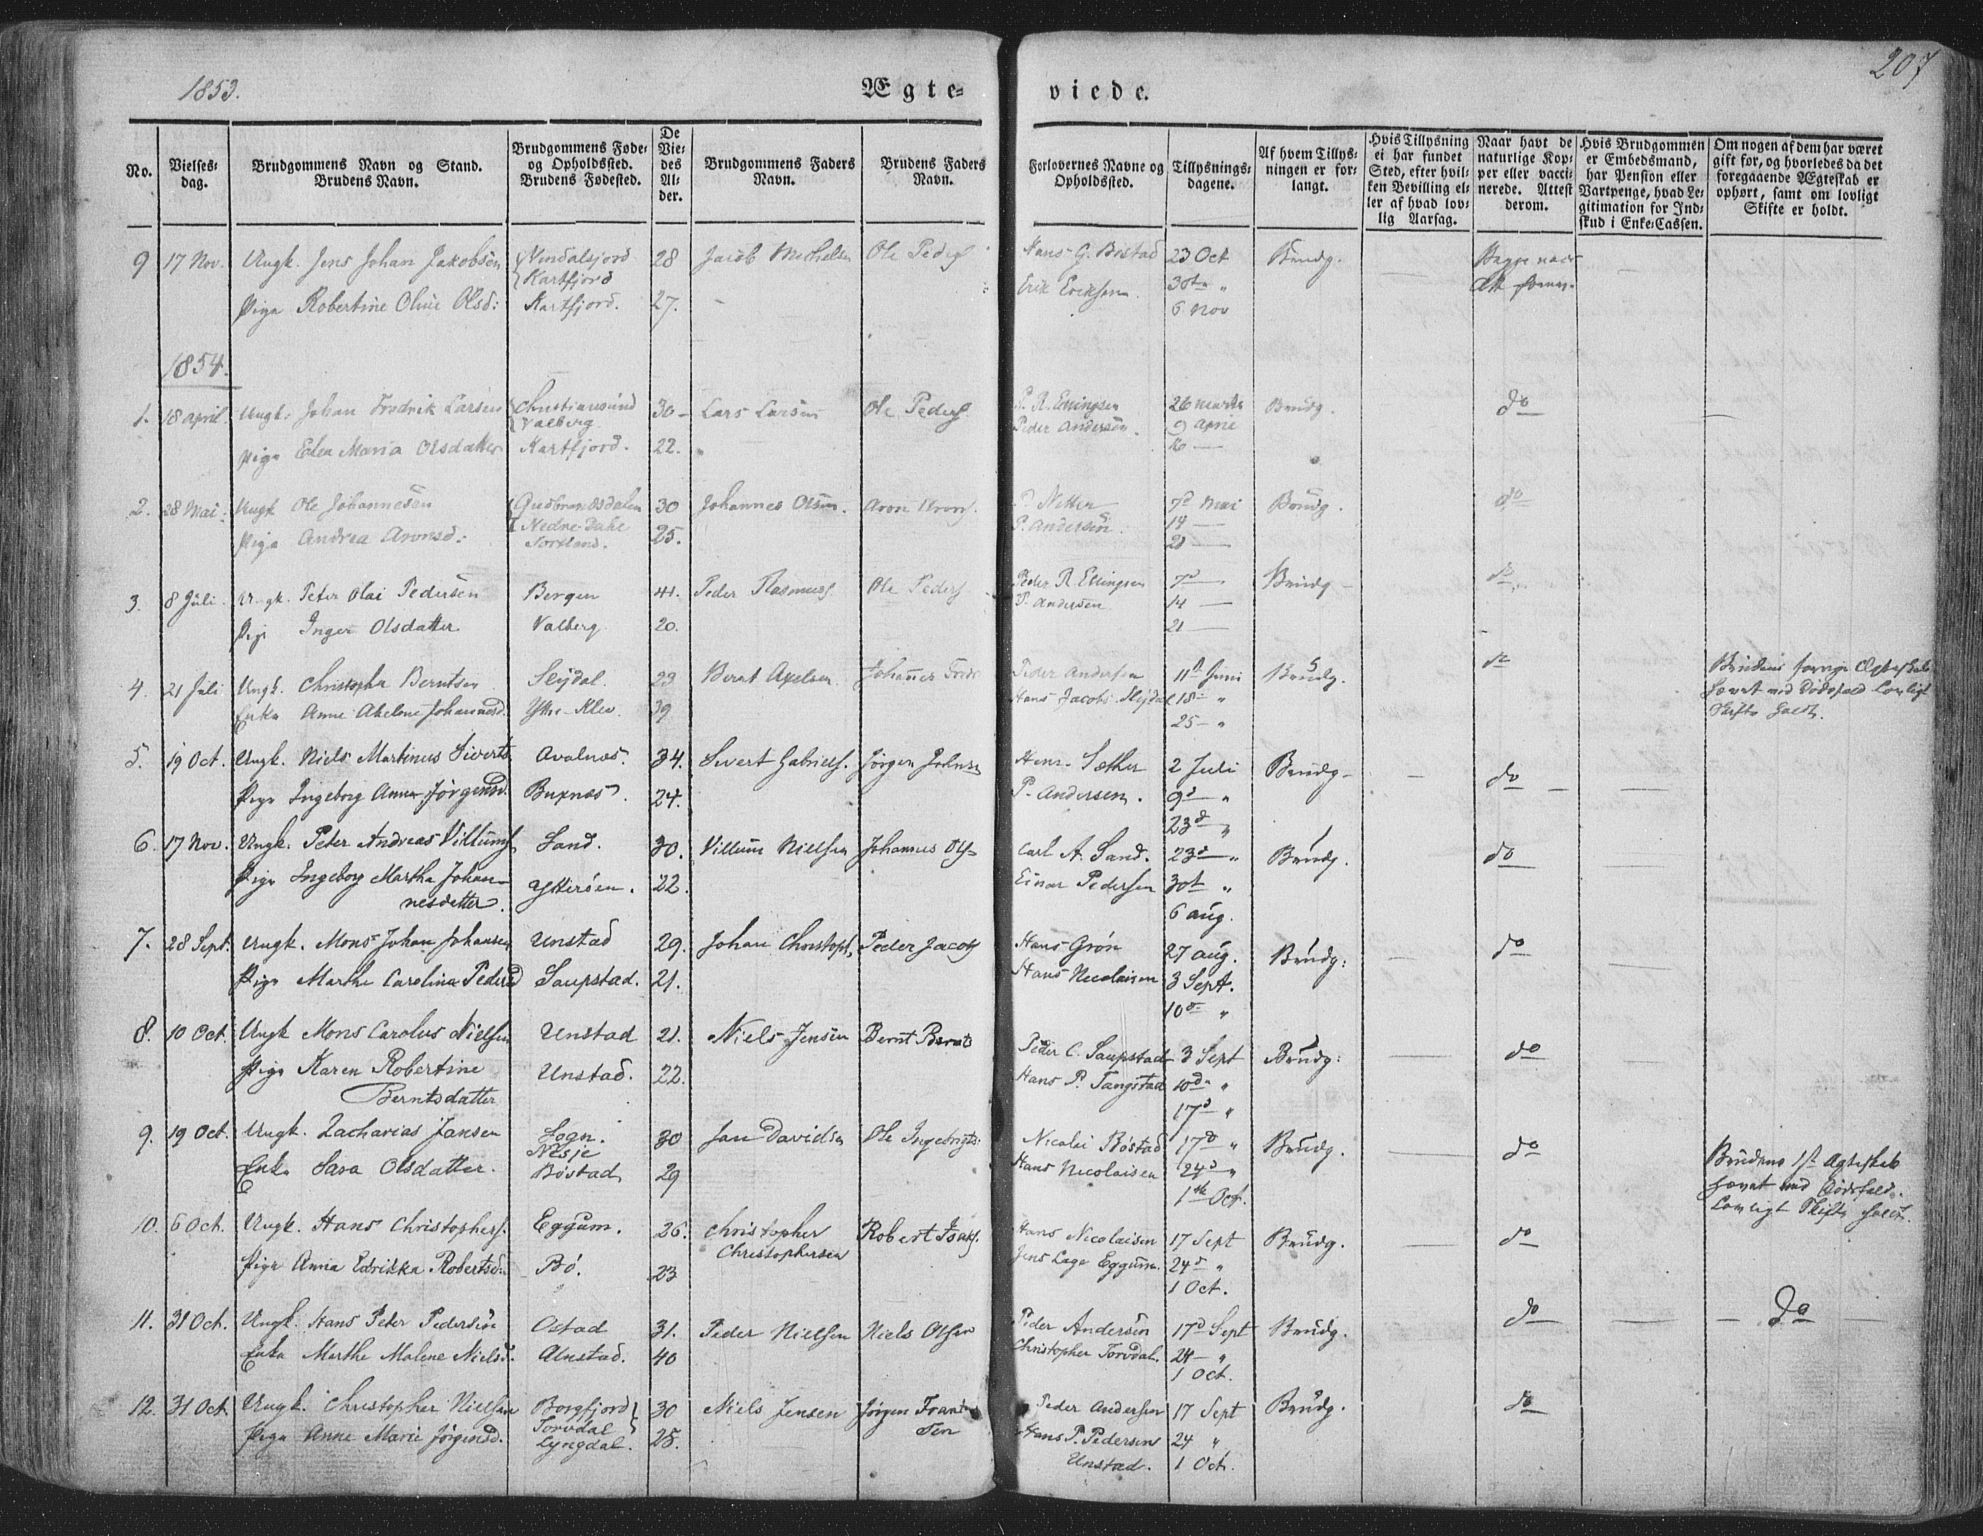 1853.
Ægte-
viede.
207
No.
Vielses-
dag.
Brudgommens Navn og Stand.
Brudens Navn.
Brudgommens Føde-
og Opholdssted.
Brudens Fødested.
De
Vie-
des
Al-
der.
Brudgommens Faders
Navn.
Brudens Faders
Navn.
Forlovernes Navne og
Opholdssted.
Tillysnings-
dagene.
Af hvem Tillys-
ningen er for-
langt.
Hvis Tillysning
ei har fundet
Sted, efter hvil-
ken Bevilling el-
ler af hvad lov-
lig Aarsag.
Naar havt de
naturlige Kop-
per eller vacci-
nerede. Attest
derom.
Hvis Brudgommen
er Embedsmand,
har Pension eller
Vartpenge, hvad Le-
gitimation for Ind-
skud i Enke-Cassen.
Om nogen af dem har været
gift før, og hvorledes da det
foregaaende Ægteskab er
ophørt, samt om lovligt
Skifte er holdt.
9 17 Nov. Ungk. Jens Johan Jakobsen 28 Jacob Ole Peders Hans G. Bostad 23 Oct Brudg.
Kartfjord
Pige Robertine Oline Olsd: Kartfjord. 27. Erik Eriksen 30te "
6 Nov
1854.
1. 18 april. Ungk. Johan Fredrik Larsen Christiansund 30 Lars Larsen Ole Peders. P. R. Ellingsen 26 Brudg. do
Valberg Peder Andersen. 9
Pige Elen Maria Olsdatter Kartfjord. 22. 16 —
2. 28 Mai. Ungk Ole Johannesen Gudbrandsdalen 30 Johannes Olsen. Aron 7d Mai Brudg. do
Pige Andrea Aronsd: 25. P. Andersen. 14 —
21 —
3. 8 Juli Ungk. Peter Olai Pedersen Bergen 44. Peder Rasmuss Ole Peders Peder R. Ellingsen 7d — Brudg do
P. Andersen 14 —
Pige Inger Olsdatter Valberg 20. 21 —
4. 21 Juli Ungk. Christopher Berntsen Slydal. 23 Bernt Axelsen Johannes Peder Andersen 11te Juni Brudg. do Brudens forrige Ægteskab
Enke Anne Johannesd. 39 Hans Jacobs. Slydal 18 — " hævet ved Dødsfald Lovligt
25 — " Skifte holdt.
5. 19 Oct. Ungk. Niels Martinus Siverts. 34. Sivert Gabriels. Jørgen Sæther 2 Juli Brudg — do
Pige Ingeborg Anna Jørgensd. Buxnæs. 24. P. Andersen. 9d — "
23d "
6. 17 Nov. Ungk. Peter Andreas Villums Sand. 30. Villum Nielsen Johannes Ols Carl A. Sand. 23d — " Brudg. do
Pige Ingeborg Martha Johan- Ytterøen. 22. Einar Pedersen 30te "
nesdatter. 6 aug.
7. 28 Sept. Ungk. Mons Johan Johansen Unstad 29. Johan Christoph. Peder Jacobs Hans Grøn 27 aug. Brudg: do
Pige Marthe Carolina Pedersd Saupstad. 21. Hans Nicolaisen 3 Sept.
10de "
8. 10 Oct. Ungk Mons Carolus Nielsen Unstad 21. Niels Jensen Bernt Bernts Peder C. Saupstad 3 Sept Brudg: do
Pige Karen Robertine Unstad. 22. Hans P. Tangstad 10de "
Berntsdatter 17d "
9. 19 Oct. Ungk. Zacharias Jansen Sogn. 30 Jan Davidsen Ole Ingebrigts. Nicolai Bøstad 17d " Brudg. do Brudens 1ste Ægteskab
Nesje
Enke Sara Olsdatter. Bøstad 29 Hans Nicolaisen 24d " hævet ved Dødsfald.
1ste Oct. Lovligt Skifte holdt.
10. 6 Oct. Ungk. Hans Christophers. Eggum. 26. Christopher Robert Isaks. Hans Nicolaisen 17 Sept Brudg. do
Christophersen
Pige Anna Edrikka Robertsd. Bø. 23 Jens Lage Eggum. 24d "
1 Oct.
11. 31 Oct. Ungk. Hans Peter Pedersen Ostad 31. Peder Nielsen Niels Olsen Peder Andersen 17d Sept Brudg. do do
Enke Marthe Malene Nielsd. Alnstad. 40 Christopher Torvdal. 24 — "
1 Oct.
12. 31 Oct. Ungk. Christopher Nielsen Borgfjord 30 Niels Jensen Jørgen Frant- Peder Andersen 17 Sept Brudg. do
Torvdal sen
Pige Anne Marie Jørgensd. Lyngdal. 25. Hans P. Pedersen 24 "
Unstad. 1 Oct.